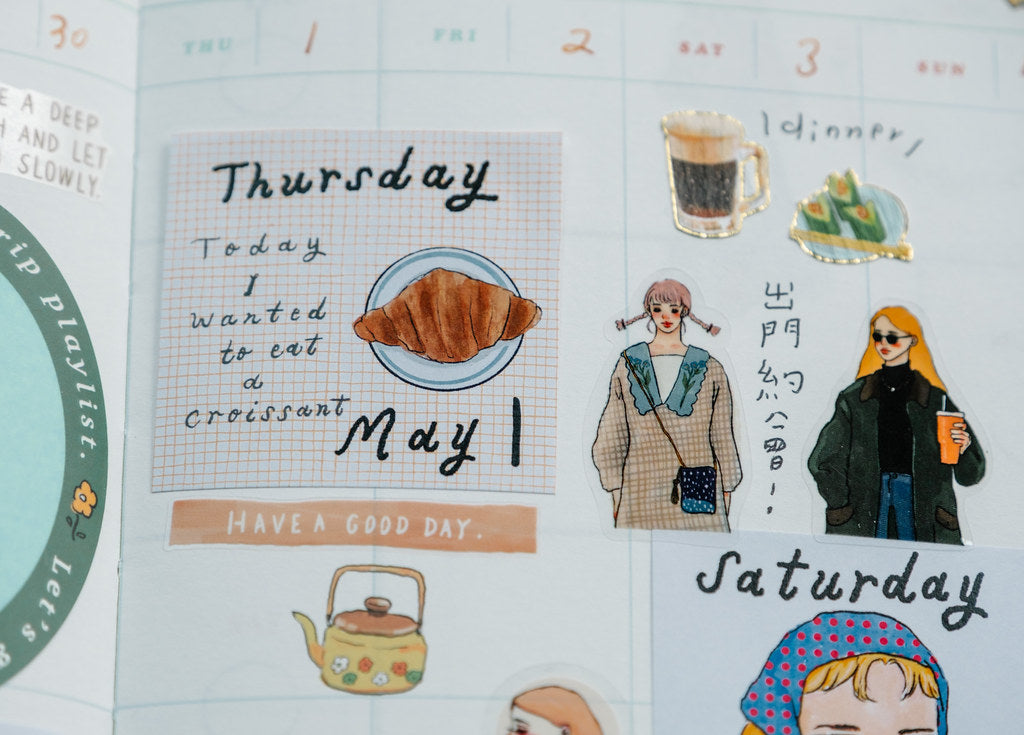 30
THU 1
FRI 2
SAT 3
SUN
E A DEEP
H AND LET
SLOWLY.
rip playlist.
Let's
Thursday
Today
I
wanted
to eat
a
croissant
May 1
HAVE A GOOD DAY.
dinner,
出
門
約
會
Saturday